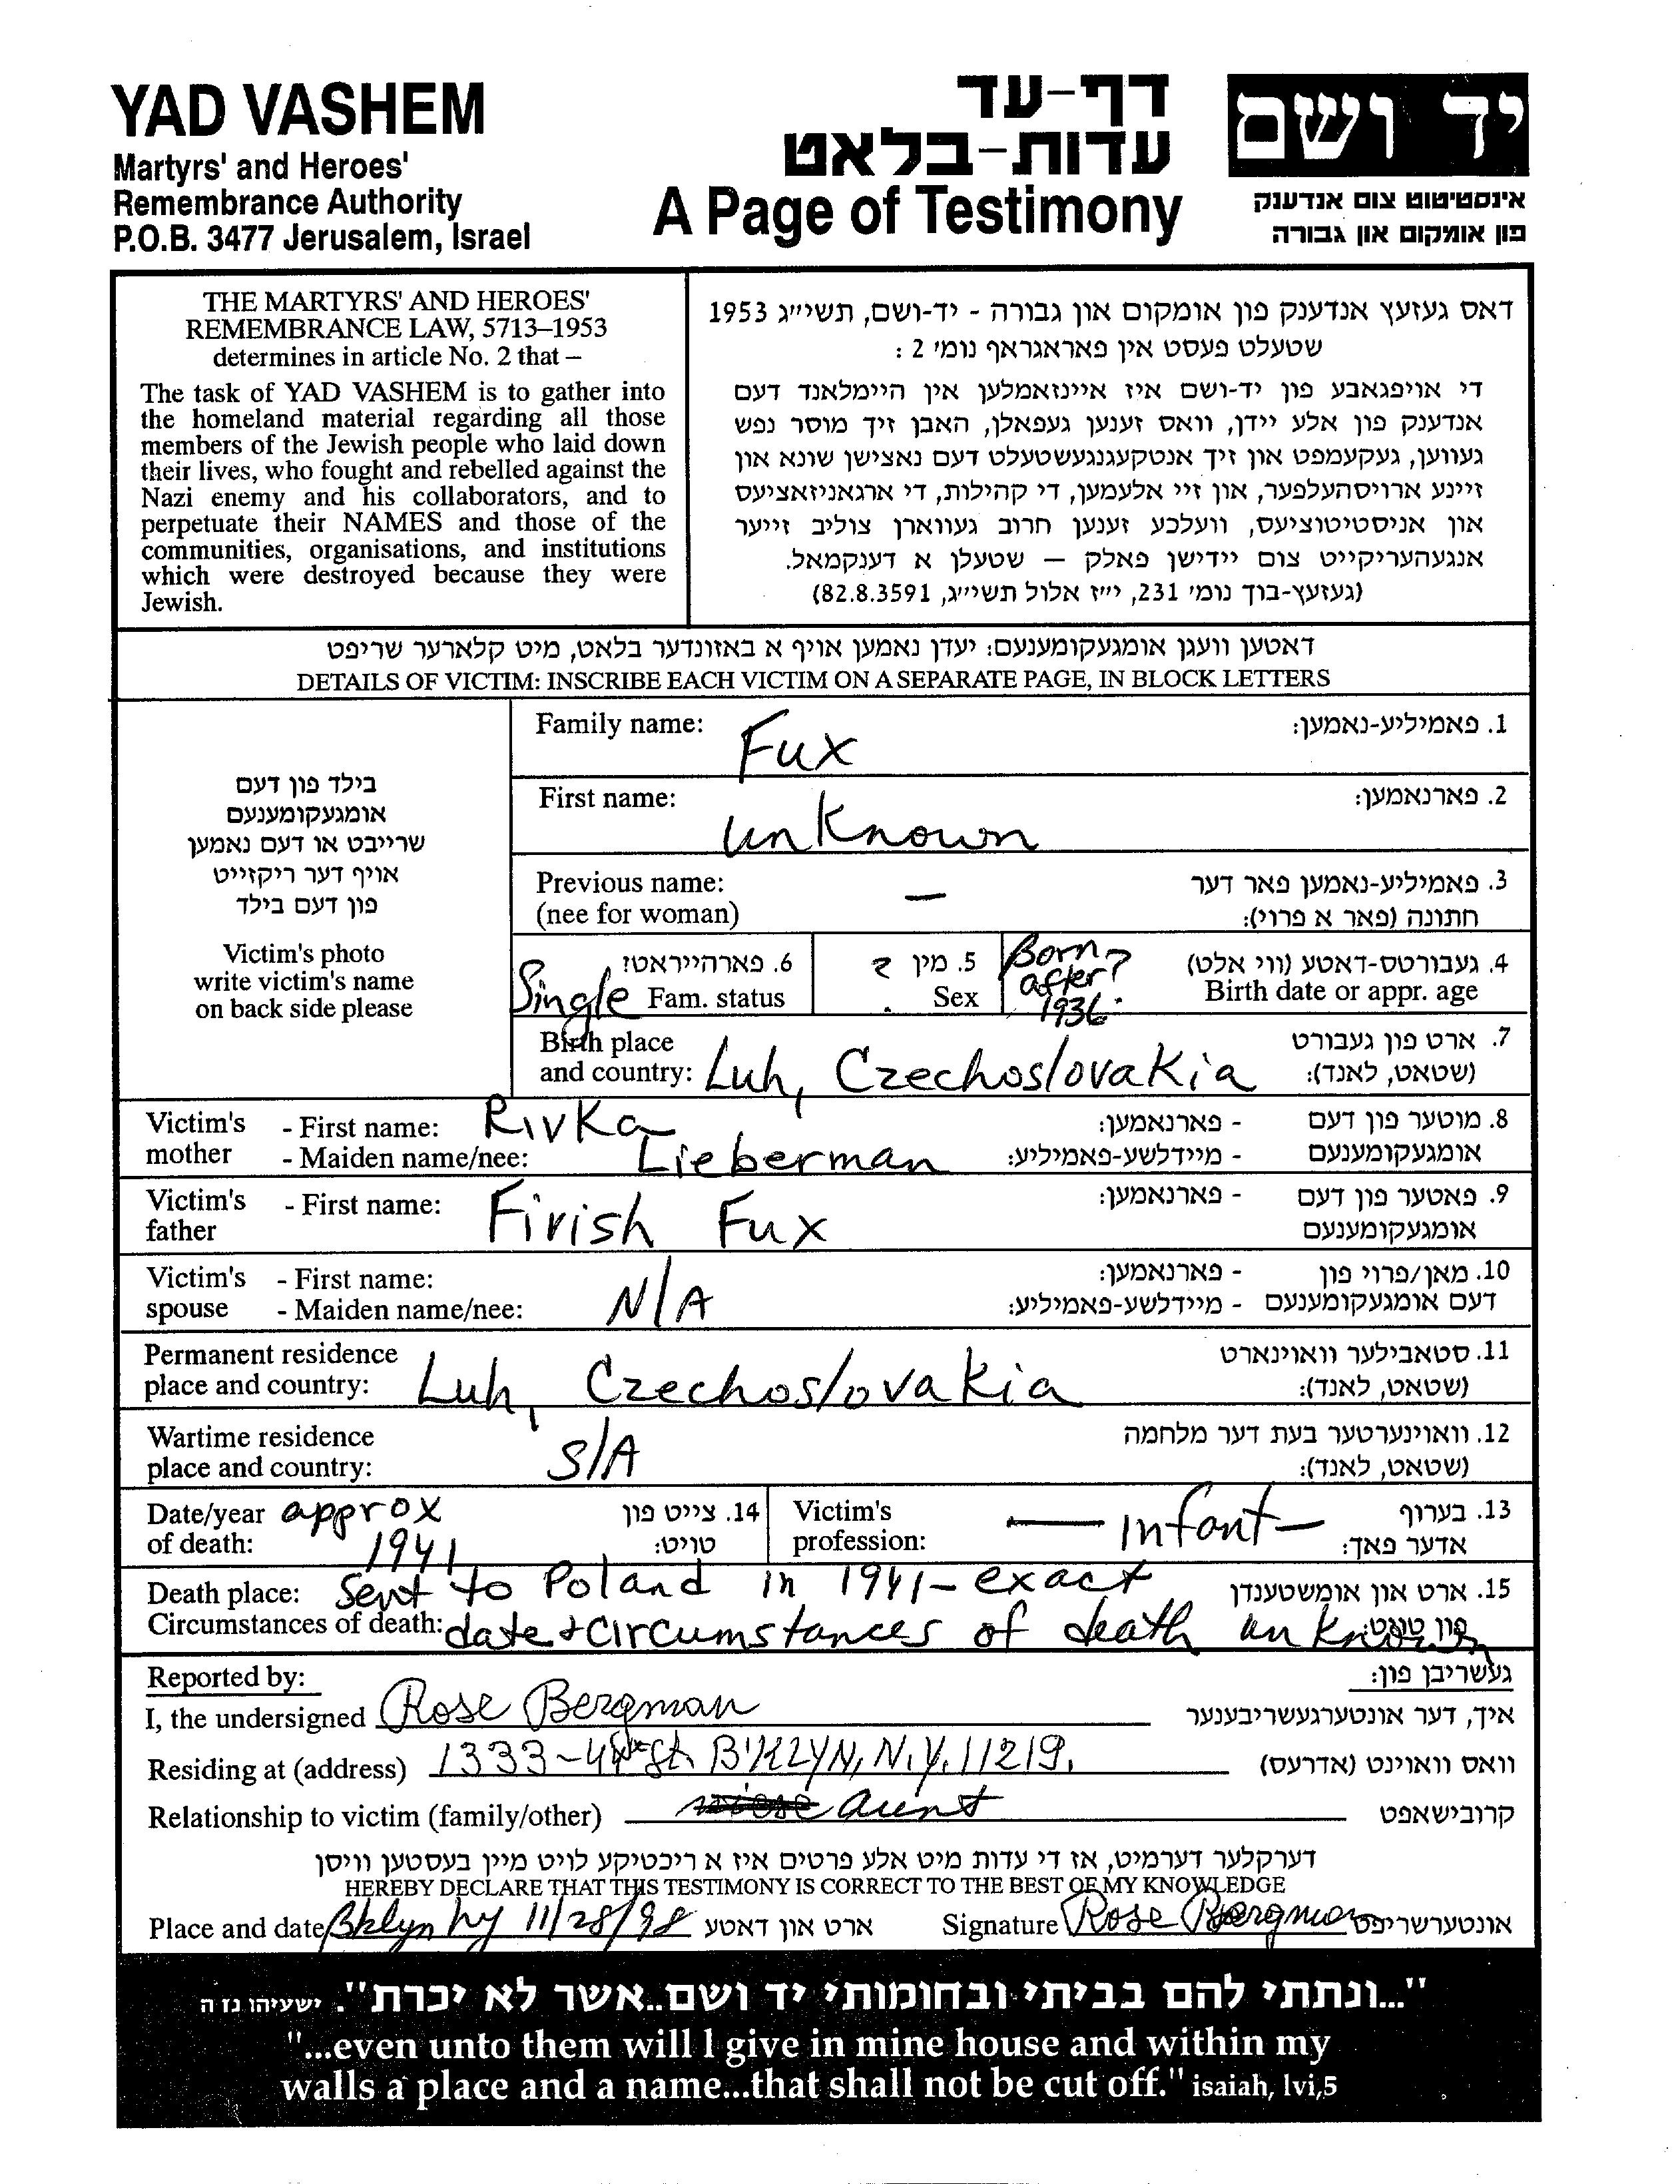 YAD VASHEM
Martyrs' and Heroes'
Remembrance Authority
P.O.B. 3477 Jerusalem, Israel
דף-עד
עדות-בלאט
A Page of Testimony
יד ושם
אינסטיטוט צום אנדענק
פון אומקום און גבורה
THE MARTYRS' AND HEROES'
REMEMBRANCE LAW, 5713–1953
determines in article No. 2 that –
The task of YAD VASHEM is to gather into
the homeland material regarding all those
members of the Jewish people who laid down
their lives, who fought and rebelled against the
Nazi enemy and his collaborators, and to
perpetuate their NAMES and those of the
communities, organisations, and institutions
which were destroyed because they were
Jewish.
דאס געזעץ אנדענק פון אומקום און גבורה - יד-ושם, תשי״ג 1953
שטעלט פעסט אין פאראגראף נומ׳ 2 :
די אויפגאבע פון יד-ושם איז איינזאמלען אין היימלאנד דעם
אנדענק פון אלע יידן, וואס זענען געפאלן, האבן זיך מוסר נפש
געווען, געקעמפט און זיך אנטקעגנגעשטעלט דעם נאצישן שונא און
זיינע ארויסהעלפער, און זיי אלעמען, די קהילות, די ארגאניזאציעס
און אניסטיטוציעס, וועלכע זענען חרוב געווארן צוליב זייער
אנגעהעריקייט צום יידישן פאלק – שטעלן א דענקמאל.
(געזעץ-בוך נומ׳ 231, י״ז אלול תשי״ג, 82.8.3591)
דאטען וועגן אומגעקומענעם: יעדן נאמען אויף א באזונדער בלאט, מיט קלארער שריפט
DETAILS OF VICTIM: INSCRIBE EACH VICTIM ON A SEPARATE PAGE, IN BLOCK LETTERS
בילד פון דעם
אומגעקומענעם
שרייבט או דעם נאמען
אויף דער ריקזייט
פון דעם בילד
Victim's photo
write victim's name
on back side please
Family name: Fux 1. פאמיליע-נאמען:
First name: unknown 2. פארנאמען:
Previous name: — 3. פאמיליע-נאמען פאר דער
(nee for woman) חתונה (פאר א פרוי):
Single 6. פארהייראט? 5. מין ? Born after? 1936. 4. געבורטס-דאטע (ווי אלט)
Fam. status Sex Birth date or appr. age
Birth place 7. ארט פון געבורט
and country: Luh, Czechoslovakia (שטאט, לאנד):
Victim's - First name: Rivka - פארנאמען: 8. מוטער פון דעם
mother - Maiden name/nee: Lieberman - מיידלשע-פאמיליע: אומגעקומענעם
Victim's - First name: Firish Fux - פארנאמען: 9. פאטער פון דעם
father אומגעקומענעם
Victim's - First name: N/A - פארנאמען: 10. מאן/פרוי פון
spouse - Maiden name/nee: - מיידלשע-פאמיליע: דעם אומגעקומענעם
Permanent residence 11. סטאבילער וואוינארט
place and country: Luh, Czechoslovakia (שטאט, לאנד):
Wartime residence 12. וואוינערטער בעת דער מלחמה
place and country: S/A (שטאט, לאנד):
Date/year approx 14. צייט פון Victim's — Infant — 13. בערוף
of death: 1941 טויט: profession: אדער פאך:
Death place: Sent to Poland in 1941 - exact 15. ארט און אומשטענדן
Circumstances of death: date + circumstances of death unknown פון טויט:
Reported by: געשריבן פון:
I, the undersigned Rose Bergman איך, דער אונטערגעשריבענער
Residing at (address) 1333 - 44 St. B'KLYN, N.Y. 11219. וואס וואוינט (אדרעס)
Relationship to victim (family/other) aunt קרובישאפט
דערקלער דערמיט, אז די עדות מיט אלע פרטים איז א ריכטיקע לויט מיין בעסטען וויסן
HEREBY DECLARE THAT THIS TESTIMONY IS CORRECT TO THE BEST OF MY KNOWLEDGE
Place and date Bklyn ny 11/28/98 ארט און דאטע Signature Rose Bergman אונטערשריפט
"...ונתתי להם בביתי ובחומותי יד ושם..אשר לא יכרת". ישעיהו נז ה
"...even unto them will I give in mine house and within my
walls a place and a name...that shall not be cut off." isaiah, lvi,5